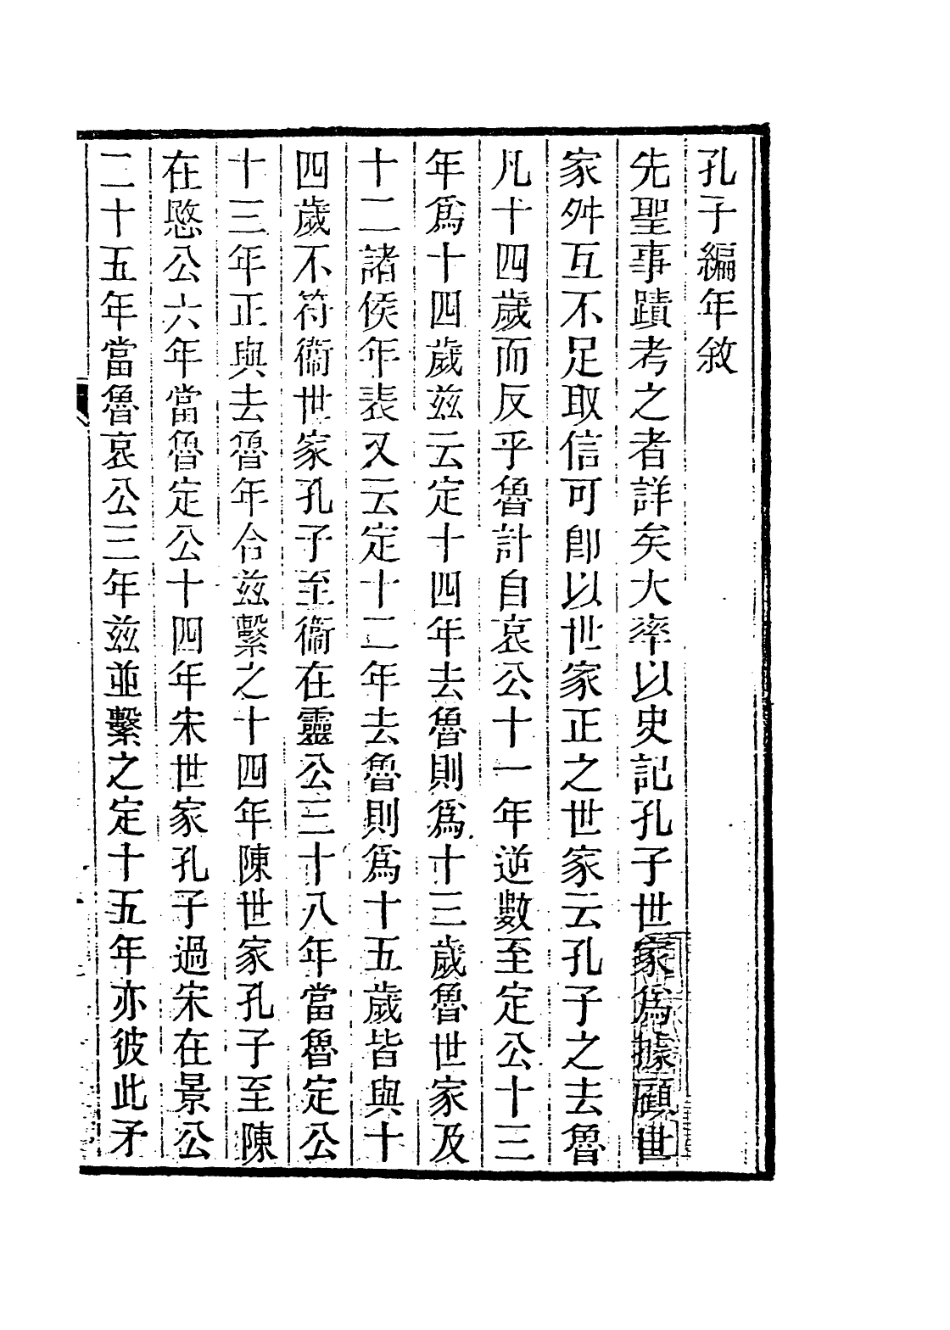 孔子編年敘
先聖事蹟考之者詳矣大率以史記孔子世家爲據顧世
家舛互不足取信可卽以世家正之世家云孔子之去魯
凡十四歲而反乎魯計自哀公十一年逆數至定公十三
年爲十四歲玆云定十四年去魯則爲十三歲魯世家及
十二諸侯年表又云定十二年去魯則爲十五歲皆與十
四歲不符衞世家孔子至衞在靈公三十八年當魯定公
十三年正與去魯年合玆繫之十四年陳世家孔子至陳
在愍公六年當魯定公十四年宋世家孔子過宋在景公
二十五年當魯哀公三年玆並繫之定十五年亦彼此矛